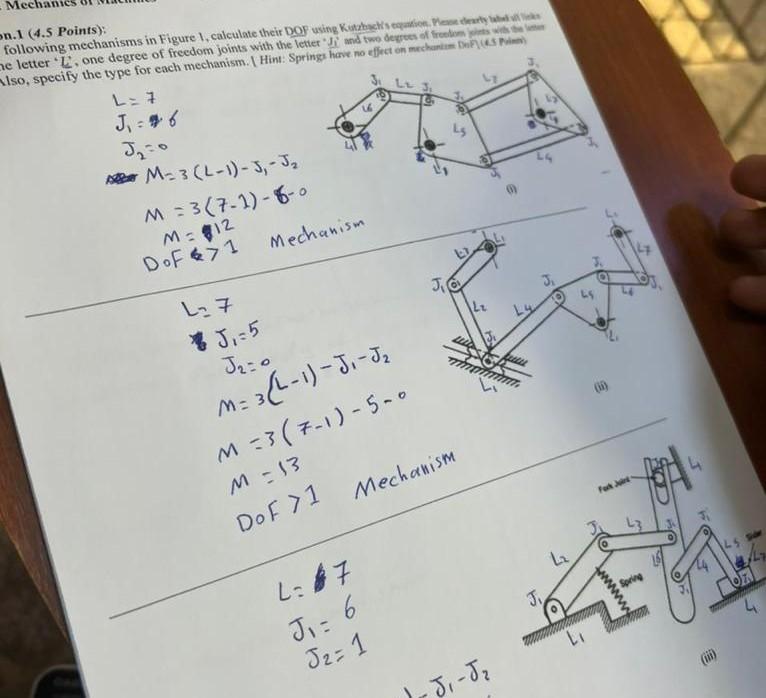 Mechanics of Ma
on.1 (4.5 Points):
following mechanisms in Figure 1, calculate their DOF using Kutzbach's equation. Please clearly label all links
he letter 'L', one degree of freedom joints with the letter 'J₁' and two degrees of freedom joints with the letter
Also, specify the type for each mechanism. [ Hint: Springs have no effect on mechanism DoF] (4.5 Points)
L = 7
J₁ = 6
J₂ = 0
M = 3 (L-1) - J₁ - J₂
M = 3(7-1) - 6 - 0
M = 12
DoF > 1 Mechanism
J₁
L₂
J₁
L6
L₅
L4
J₁
(i)
L = 7
J₁ = 5
J₂ = 0
M = 3(L-1) - J₁ - J₂
M = 3(7-1) - 5 - 0
M = 13
DoF > 1 Mechanism
J₁
L₂
L4
J₁
J₁
L5
L6
L7
J₁
L₁
(ii)
L = 7
J₁ = 6
J₂ = 1
- J₁ - J₂
Fork Joint
L₂
J₁
L3
J₁
L6
L4
L5
J₁
Spring
L₁
(iii)